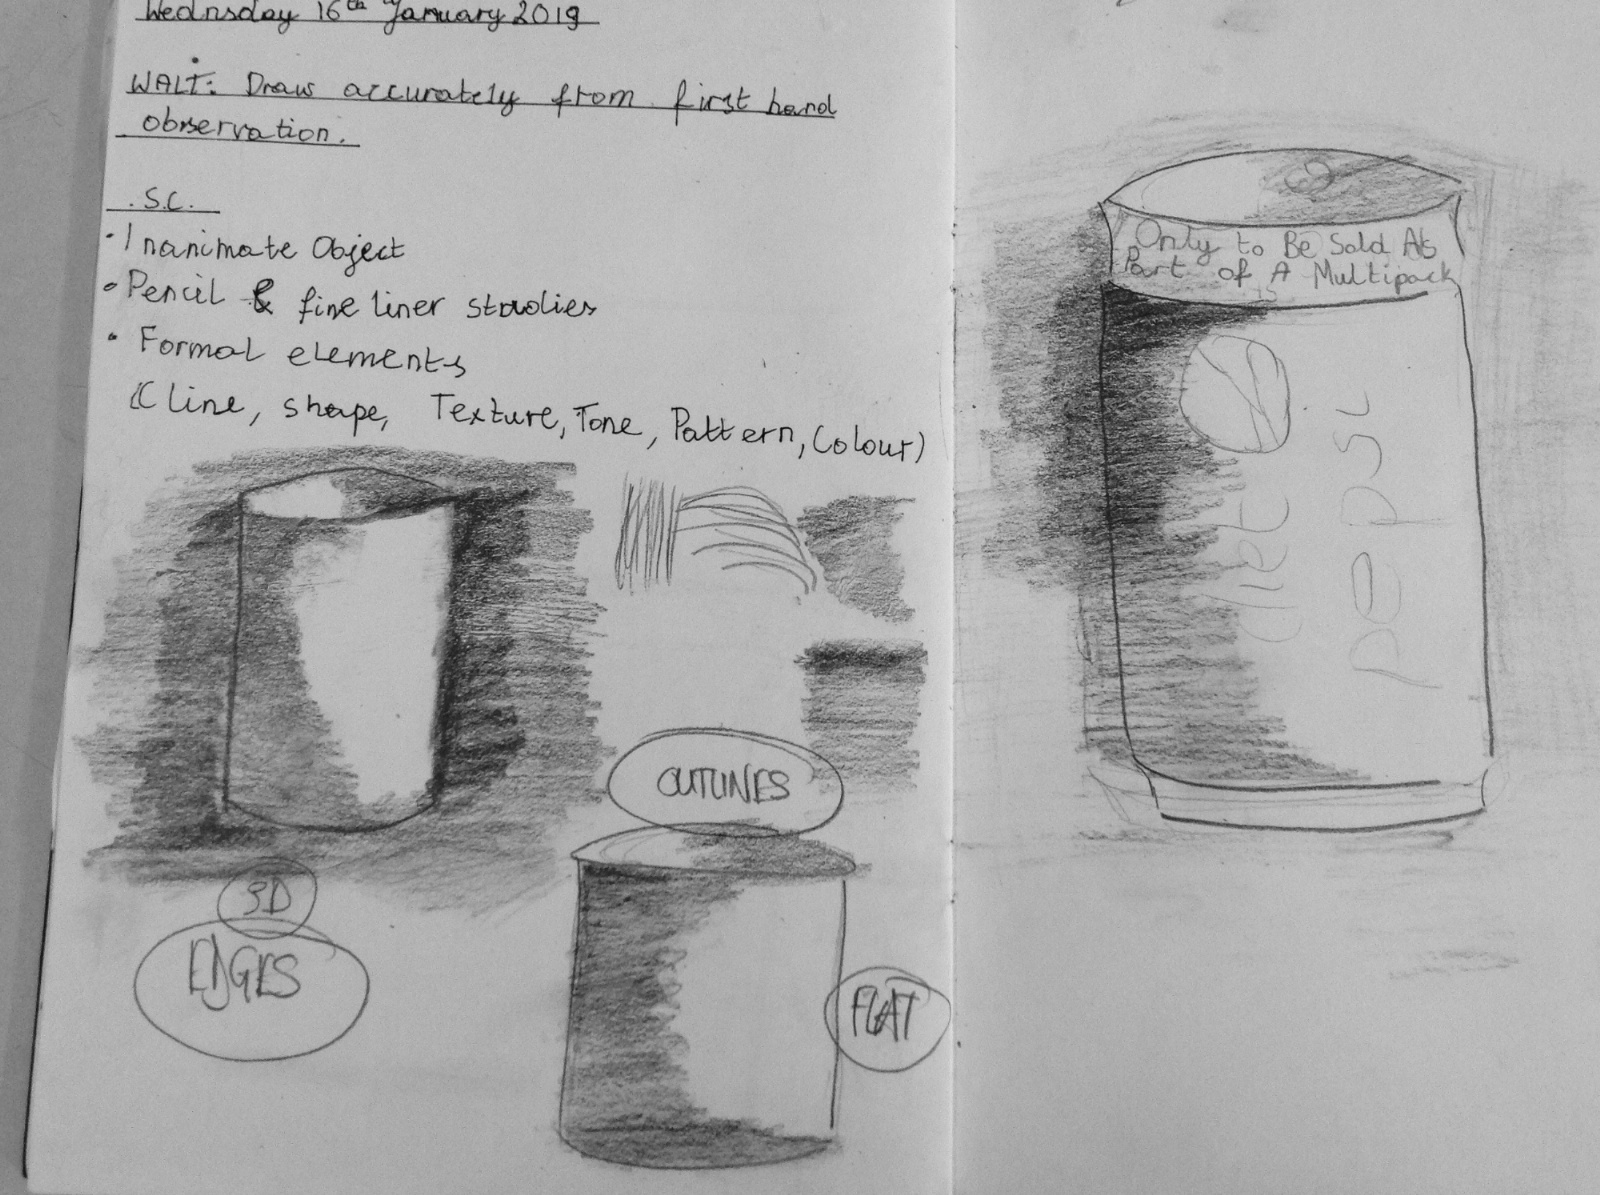 Wednsday 16th January 2019
WALT: Draw accurately from first hand
observation.
S.C.
• Inanimate Object
• Pencil & fine liner studies
• Formal elements
(Line, shape, Texture, Tone, Pattern, Colour)
OUTLINES
3D
EDGES
FLAT
Only to Be Sold As
Part of A Multipack
diet
pepsi